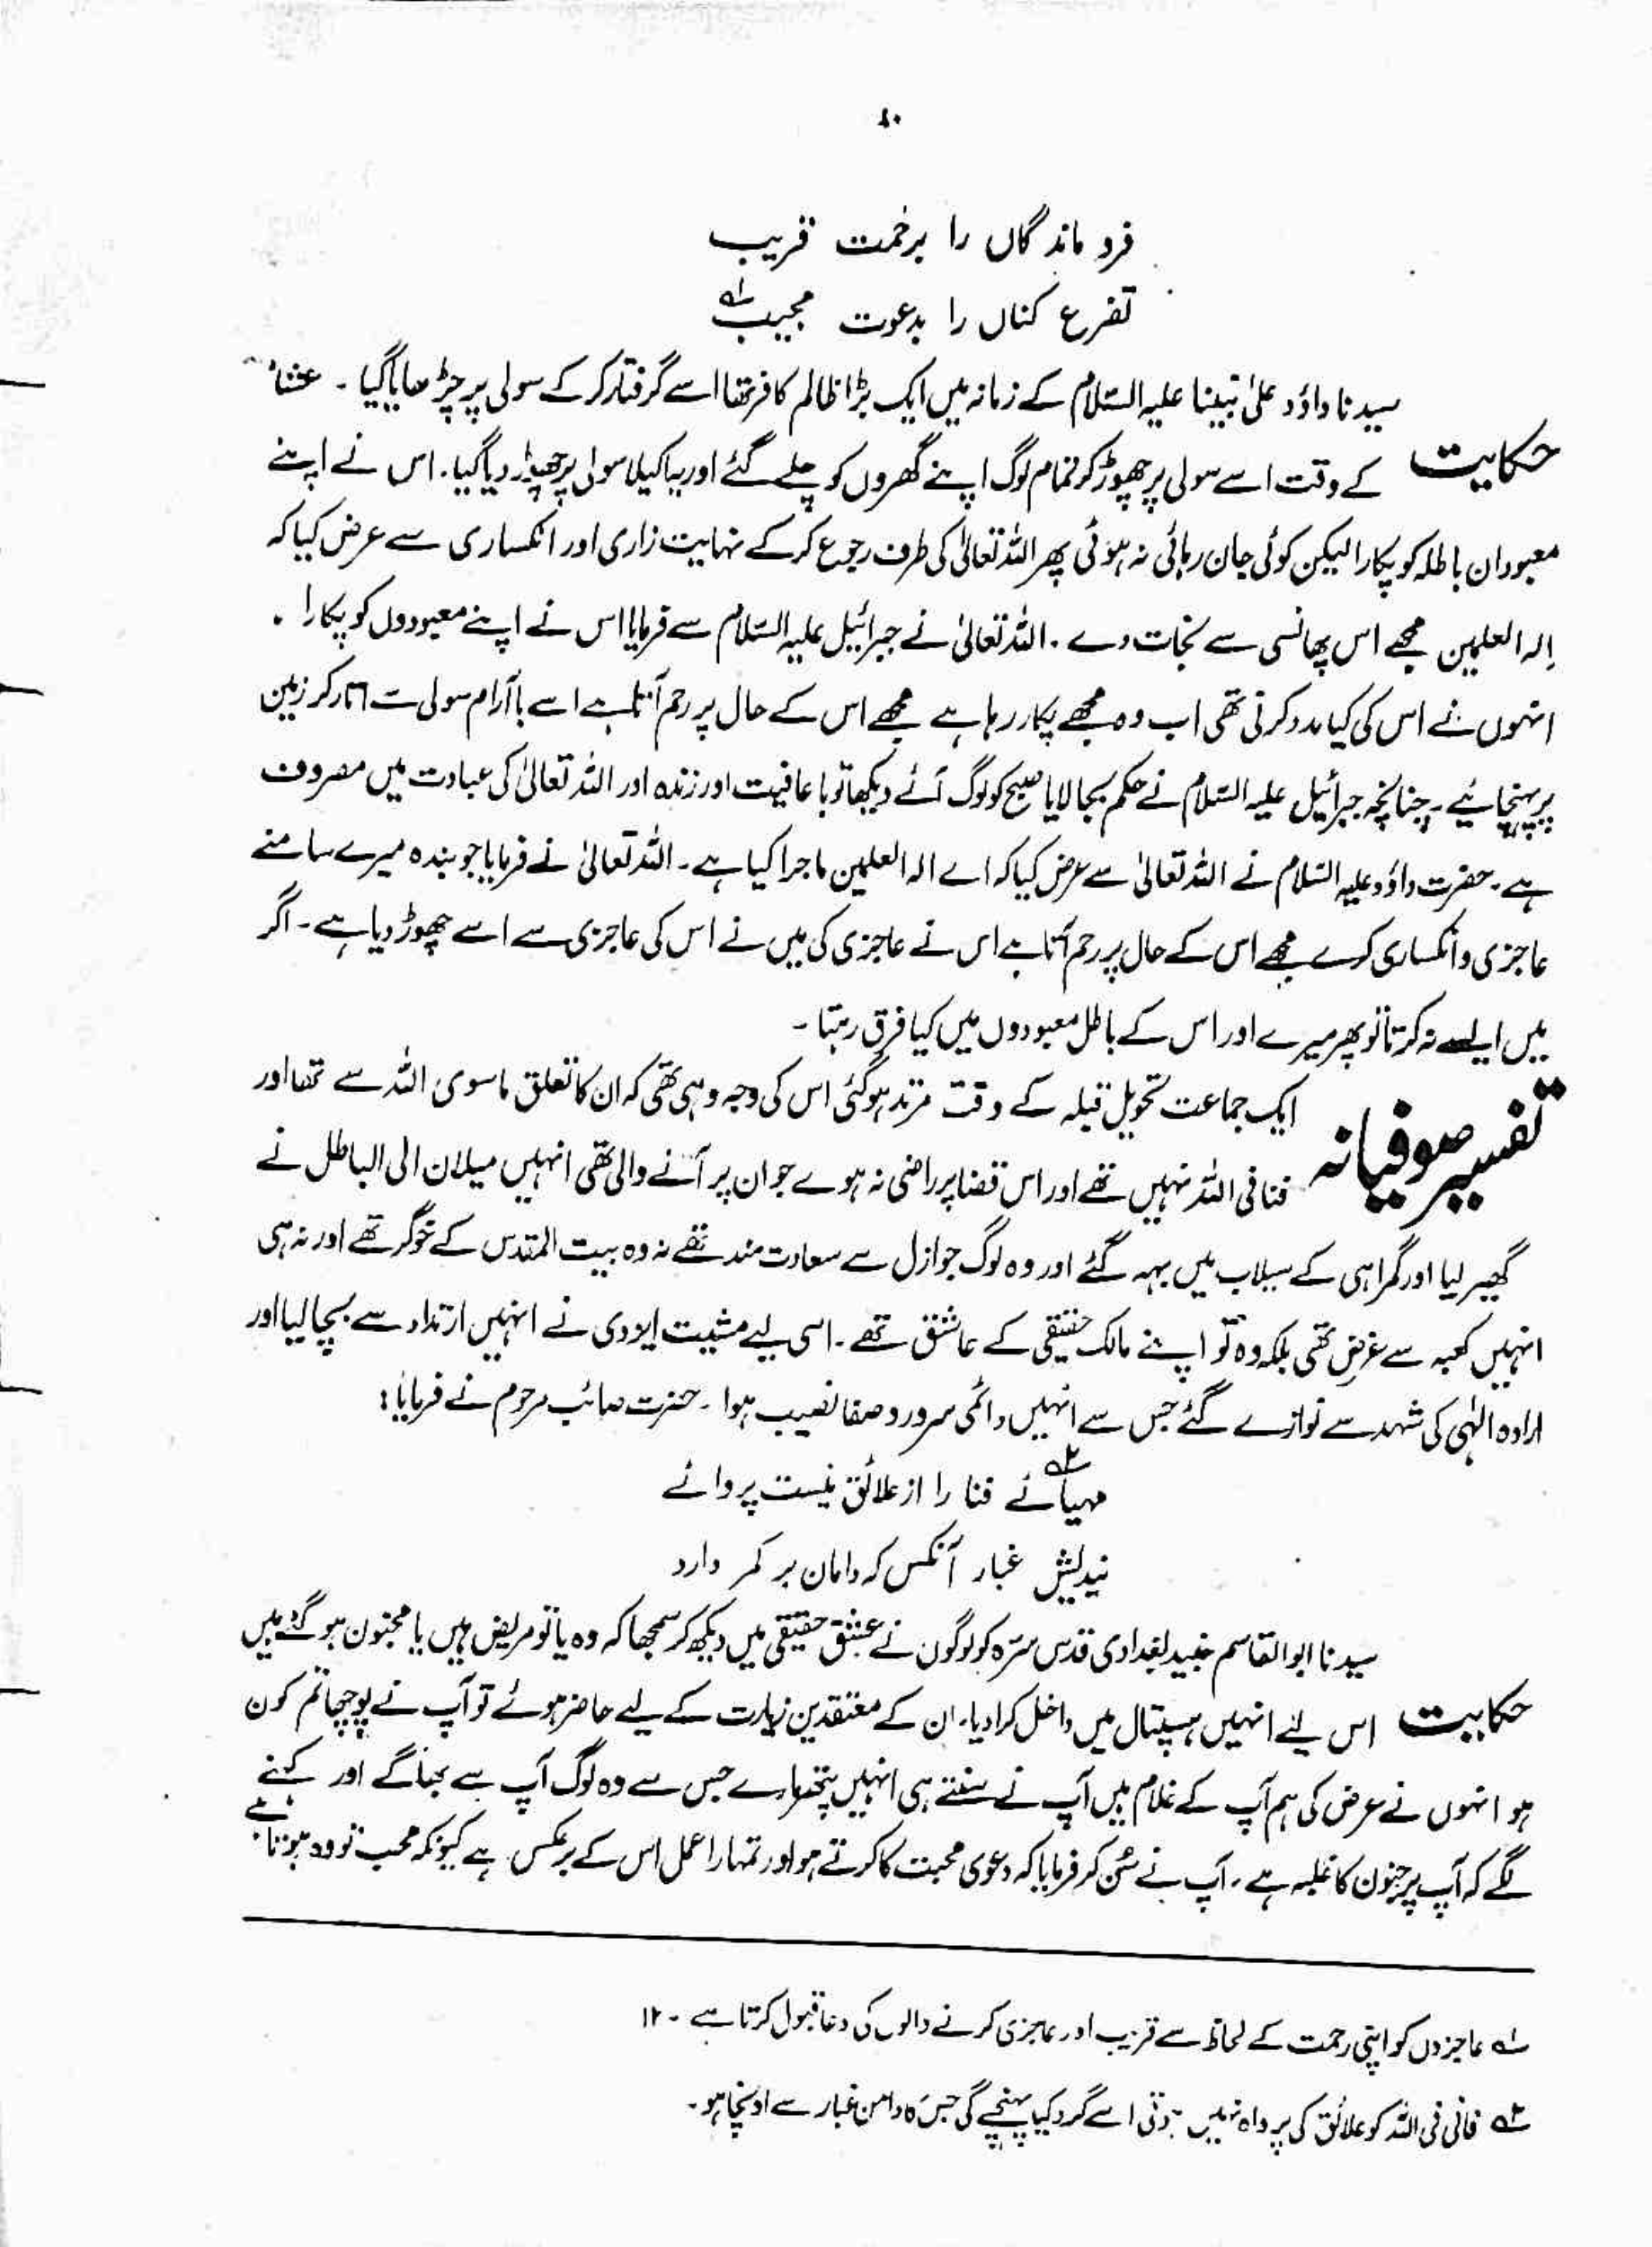 ۸۰
فرو ماندگاں را برحمت قریب
تضرع کناں را بدعوت مجیب ؎۱
سیدنا داؤد علیٰ نبینا علیہ السّلام کے زمانہ میں ایک بڑا ظالم کافر تھا اسے گرفتار کر کے سولی پر چڑھایا گیا ۔ عشاء
حکایت کے وقت اسے سولی پر چھوڑ کر تمام لوگ اپنے گھروں کو چلے گئے اور یہ اکیلا سولی پر چھوڑ دیا گیا۔ اس نے اپنے
معبودان باطلہ کو پکارا لیکن کوئی جان رہائی نہ ہوئی پھر اللہ تعالیٰ کی طرف رجوع کر کے نہایت زاری اور انکساری سے عرض کیا کہ
اِلہ العلمین مجھے اس پھانسی سے نجات دے ۔ اللہ تعالیٰ نے جبرائیل علیہ السّلام سے فرمایا اس نے اپنے معبودوں کو پکارا ۔
انہوں نے اس کی کیا مدد کرنی تھی اب وہ مجھے پکار رہا ہے مجھے اس کے حال پر رحم آتا ہے اسے باآرام سولی سے اتار کر زمین
پر پہنچائیے ۔ چنانچہ جبرائیل علیہ السّلام نے حکم بجا لایا صبح کو لوگ آئے دیکھا تو با عافیت اور زندہ اور اللہ تعالیٰ کی عبادت میں مصروف
ہے ۔ حضرت داؤد علیہ السّلام نے اللہ تعالیٰ سے عرض کیا کہ اے الہ العلمین ماجرا کیا ہے ۔ اللہ تعالیٰ نے فرمایا جو بندہ میرے سامنے
عاجزی و انکساری کرے مجھے اس کے حال پر رحم آتا ہے اس نے عاجزی کی میں نے اس کی عاجزی سے اسے چھوڑ دیا ہے ۔ اگر
میں ایسے نہ کرتا تو پھر میرے اور اس کے باطل معبودوں میں کیا فرق رہتا ۔
تفسیر صوفیانہ ایک جماعت تحویل قبلہ کے وقت مرتد ہو گئی اس کی وجہ وہی تھی کہ ان کا تعلق ماسوی اللہ سے تھا اور
فنا فی اللہ نہیں تھے اور اس قضا پر راضی نہ ہوے جو ان پر آنے والی تھی انہیں میلان الی الباطل نے
گھیر لیا اور گمراہی کے سیلاب میں بہہ گئے اور وہ لوگ جو ازل سے سعادت مند تھے نہ وہ بیت المقدس کے خوگر تھے اور نہ ہی
انہیں کعبہ سے غرض تھی بلکہ وہ تو اپنے مالک حقیقی کے عاشق تھے ۔ اسی لیے مشیت ایزدی نے انہیں ارتداد سے بچا لیا اور
ارادہ الٰہی کی شہد سے نوازے گئے جس سے انہیں دائمی سرور و صفا نصیب ہوا ۔ حضرت صائب مرحوم نے فرمایا :
مہیائے ؎۲ فنا را از علائق نیست پروائے
نیدیش غبار آنکس کہ دامان بر کمر دارد
سیدنا ابوالقاسم جنید بغدادی قدس سرّہ کو لوگوں نے عشق حقیقی میں دیکھ کر سمجھا کہ وہ یا تو مریض ہیں یا مجنون ہو گئے ہیں
حکایت اس لئے انہیں ہسپتال میں داخل کرا دیا۔ ان کے معتقدین زیارت کے لیے حاضر ہوئے تو آپ نے پوچھا تم کون
ہو انہوں نے عرض کی ہم آپ کے غلام ہیں آپ نے سنتے ہی انہیں پتھر مارے جس سے وہ لوگ آپ سے بھاگے اور کہنے
لگے کہ آپ پر جنون کا غلبہ ہے ۔ آپ نے سُن کر فرمایا کہ دعوی محبت کا کرتے ہو اور تمہارا عمل اس کے برعکس ہے کیونکہ محب تو وہ ہوتا ہے
؎۱ عاجزوں کو اپنی رحمت کے لحاظ سے قریب اور عاجزی کرنے والوں کی دعا قبول کرتا ہے ۔ ۱۲
؎۲ فانی فی اللہ کو علائق کی پرواہ نہیں ہوتی اسے گرد کیا پہنچے گی جس کا دامن غبار سے اونچا ہو ۔